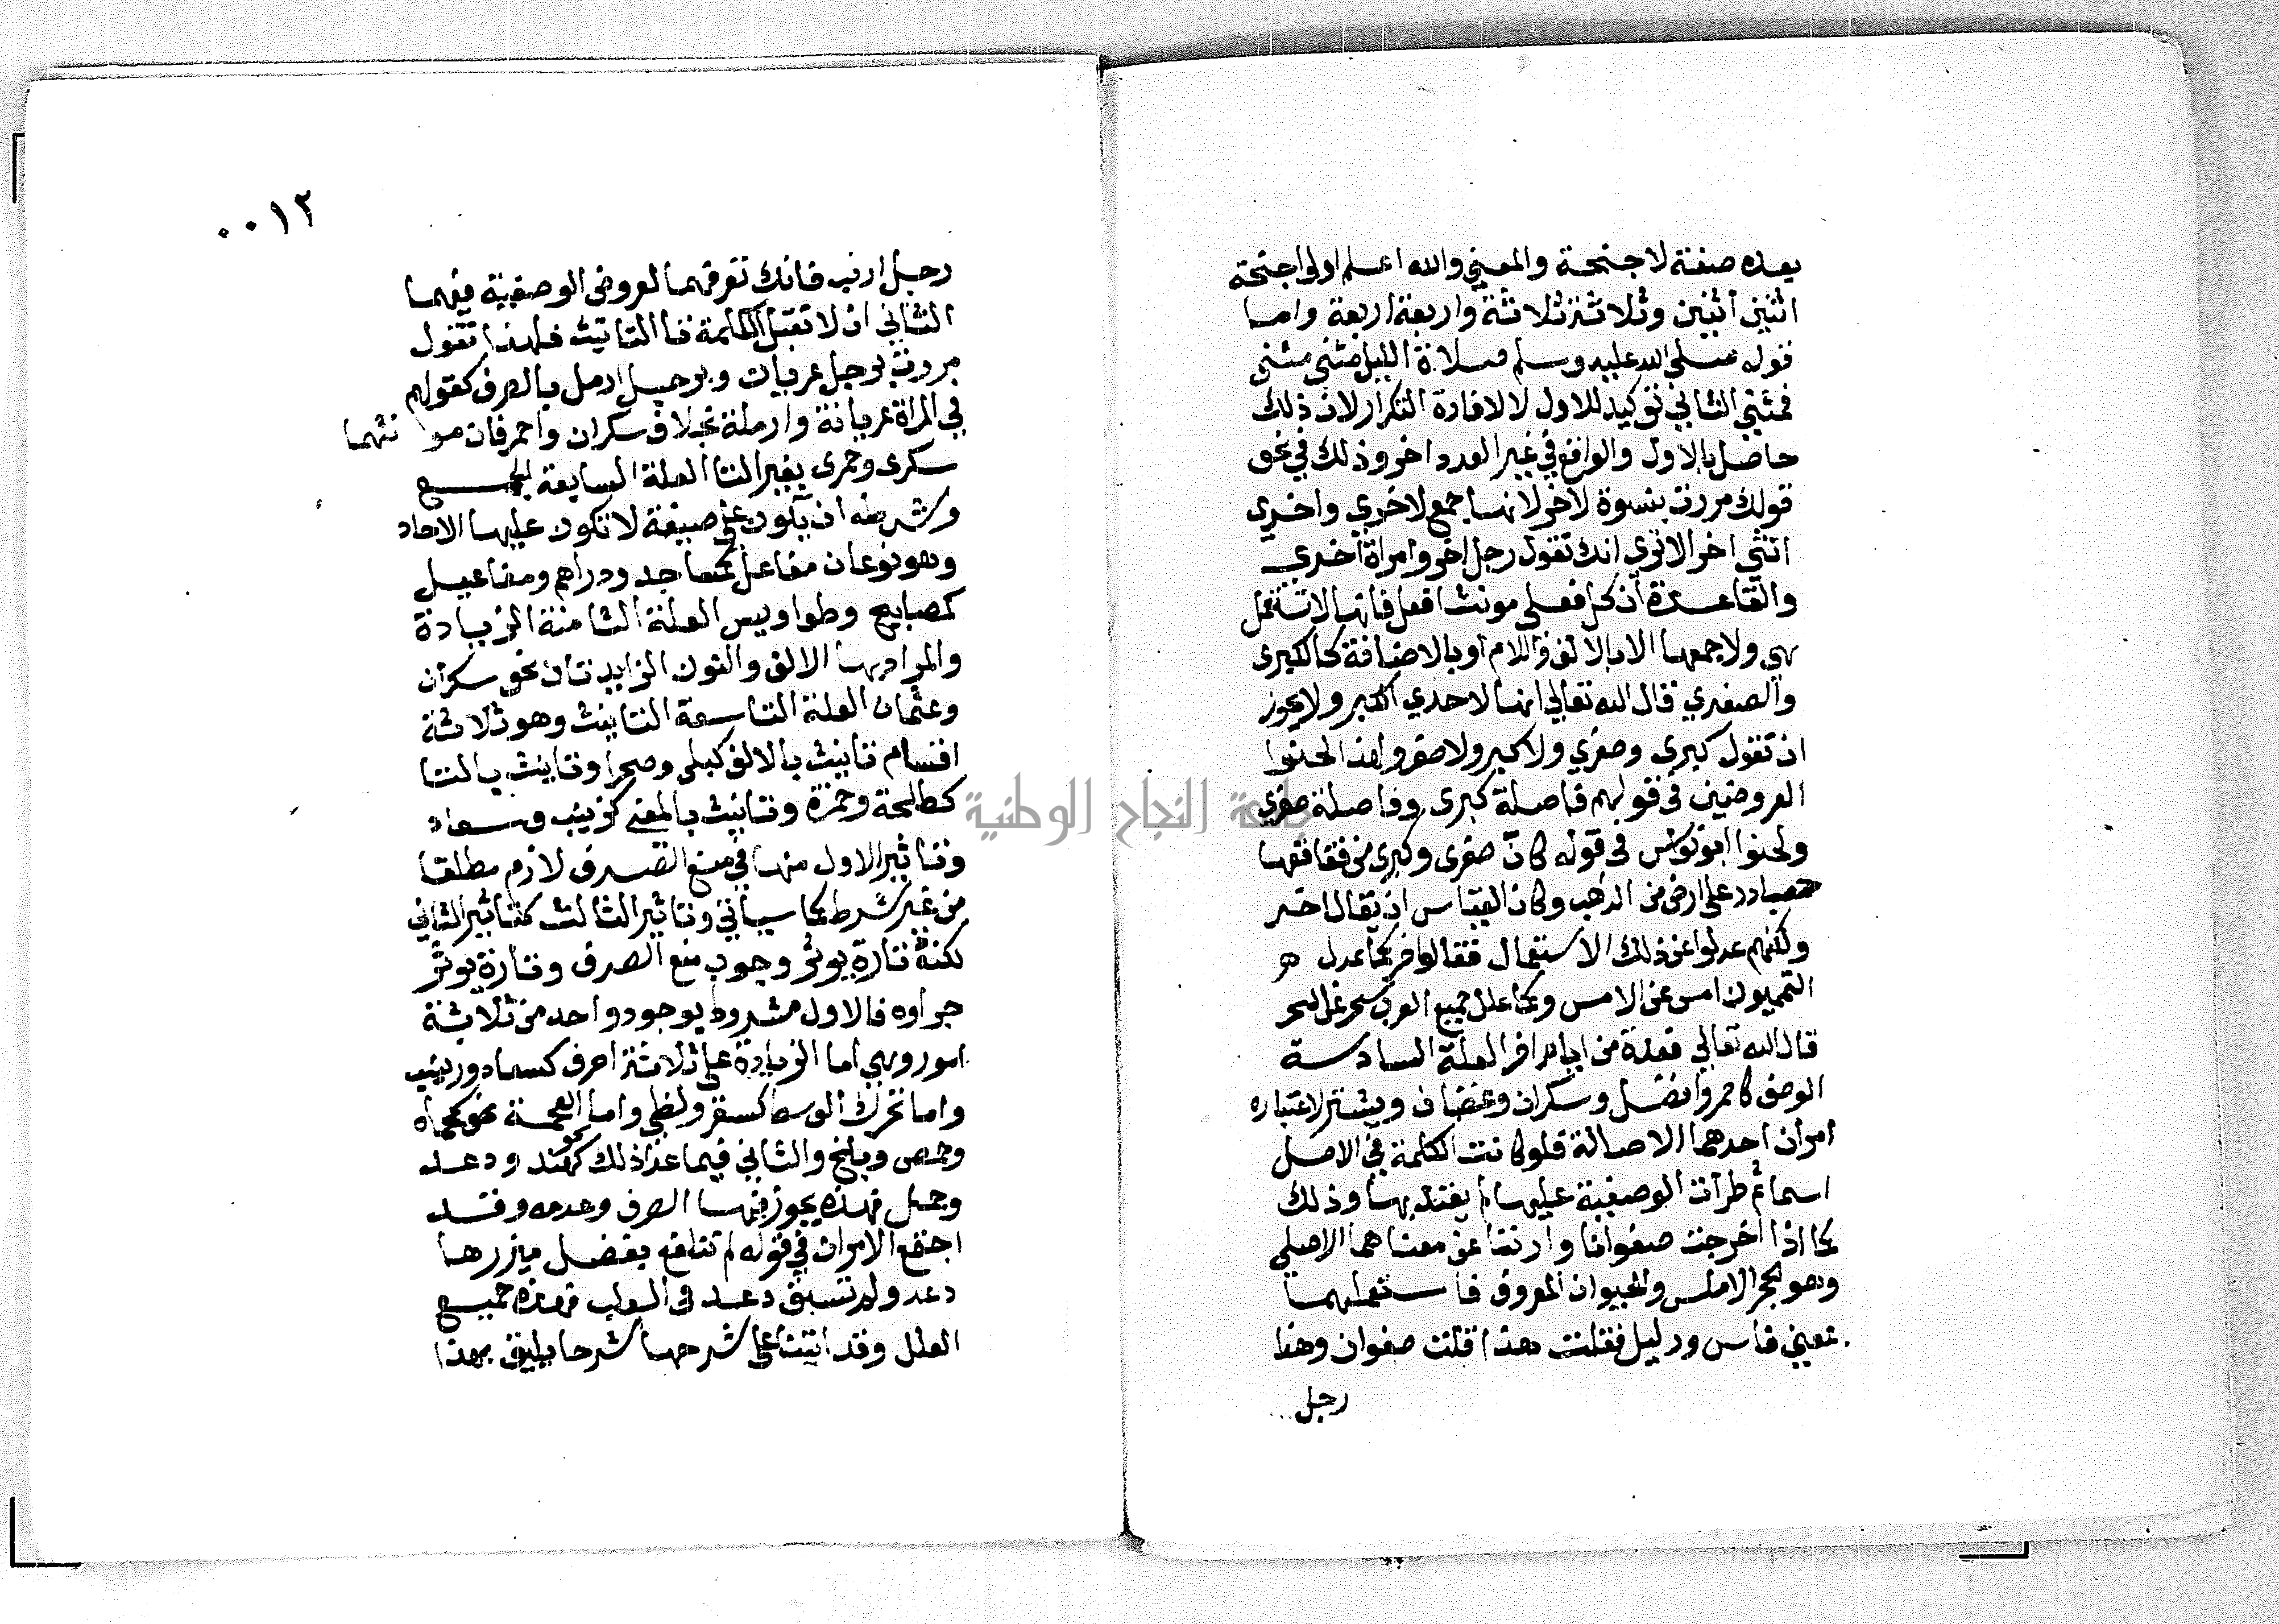 بعده صفة لاجنحة والمعني والله اعلم اولي اجنحة
اثنين اثنين وثلاثة ثلاثة واربعة اربعة واما
قوله صلي الله عليه وسلم صلاة الليل مثني مثني
فمثني الثاني توكيد للاول لا لافادة التكرار لان ذلك
حاصل بالاول والواقع في غير العدد اخر وذلك في نحو
قولك مررت بنسوة لاخر لانها جمع لاخري واخري
انثي اخر الاتري انك تقول رجل اخر وامراة اخري
والقاعدة ان كل فعلي مونث افعل فانها لا تستعمل
هي ولا جمعها الا بالالف واللام او بالاضافة كالكبرى
والصغري قال الله تعالي انها لاحدي الكبر ولا يجوز
ان تقول كبرى وصغري ولا كبر ولا صغر ولهذا لحنوا
العروضين في قولهم فاصلة كبرى وفاصلة صغري
ولحنوا ابو نواس في قوله كان صغرى وكبرى من فقاقعها
حصبا در على ارض من الذهب وكان القياس ان يقال اخر
ولكنهم عدلوا عن ذلك الاستعمال فقالوا اخر كما عدل
التميميون امس عن الامس وكما عدل جميع العرب سحر عن السحر
قال الله تعالي فعدة من ايام اخر العلة السادسة
الوصف كاحمر وافضل وسكران وغضبان ويشترلاعتباره
امران احدهما الاصالة فلو كانت الكلمة في الاصل
اسما ثم طرات الوصفية عليها لم يعتد بها وذلك
كما اذا اخرجت صفوانا وارنبا عن معناهما الاصلي
وهو لحجر الاملس والحيوان المعروف فاستعملهما
بمعني قاس وذليل فقلت هذا قلت صفوان وهذا
رجل
٠٠١٢
رجل ارنب فانك تعرفهما لعروض الوصفية فيهما
الثاني ان لا تقبل الكلمة تا التانيث فلهذا تقول
مررت برجل عريان وبرجل ارمل بالصرف كقولهم
في المراة عريانة وارملة بخلاف سكران واحمر فان مونثهما
سكرى وحمرى بغير التا العلة السابعة الجمع
وشرطه ان يكون على صيغة لا تكون عليها الاحاد
وهو نوعان مفاعل كمساجد ودراهم ومفاعيل
كمصابيح وطواويس العلة الثامنة الزيادة
والمراد بها الالف والنون الزايدتان نحو سكران
وعثمان العلة التاسعة التانيث وهو ثلاثة
اقسام تانيث بالالف كحبلى وصحرا وتانيث بالتا
كطلحة وحمزة وتانيث بالمعنى كزينب وسعاد
وتاثير الاول منها في منع الصرف لازم مطلقا
من غير شرط كما سياتي وتاثير الثالث كتاثير الثاني
لكنه تارة يوثر وجوب منع الصرف وتارة يوثر
جوازه فالاول مشروط بوجود واحد من ثلاثة
امور وهي اما الزيادة على ثلاثة احرف كسعاد وزينب
واما تحرك الوسط كسقر ولظى واما العجمة نحو كماه
وحمص وبلخ والثاني فيما عدا ذلك كهند ودعد
وجمل فهذه يجوز فيها الصرف وعدمه وقد
اجتمع الامران في قوله لم تتلفع بفضل ميزرها
دعد ولم تسبق دعد في العلب فهذه جميع
العلل وقد اتينا على شرحها شرحا يليق بهذا
جامعة النجاح الوطنية